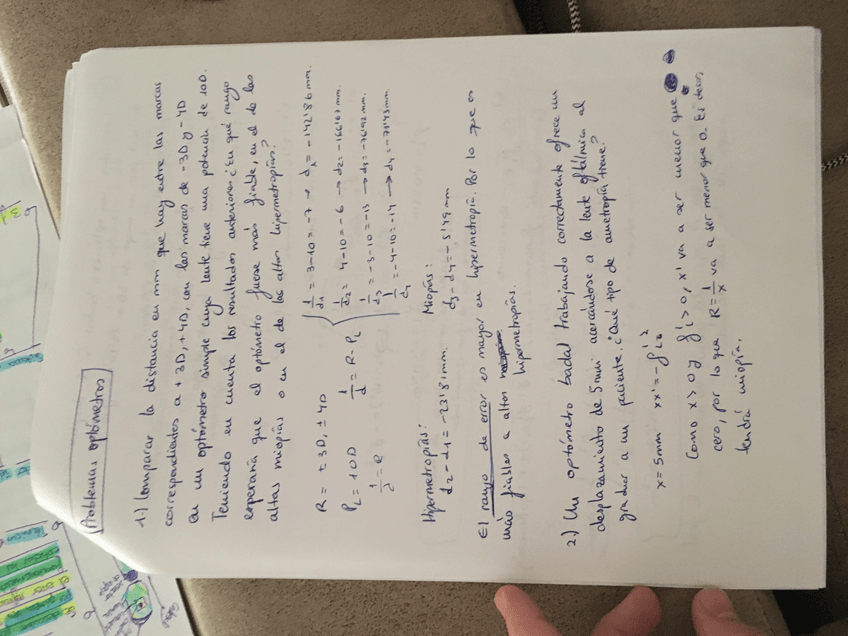 Problemas optómetros
1.) Comparar la distancia en mm que hay entre las marcas
correspondientes a +3D, +4D, con las marcas de -3D y -4D
en un optómetro simple cuya lente tiene una potencia de 10D.
Teniendo en cuenta los resultados anteriores ¿En qué rango
esperaría que el optómetro fuese más fiable, en el de las
altas miopías o en el de las altas hipermetropías?
R = ±3D, ±4D
P_L = 10D
1/d = R - P_L
1/d₁ = 3-10 = -7 → d₁ = -142'86 mm.
1/d₂ = 4-10 = -6 → d₂ = -166'67 mm.
1/d₃ = -3-10 = -13 → d₃ = -76'92 mm.
1/d₄ = -4-10 = -14 → d₄ = -71'43 mm.
Hipermetropías: Miopías:
d₂ - d₁ = -23'81 mm. d₃ - d₄ = -5'49 mm
El rango de error es mayor en hipermetropía. Por lo que es
más fiables a altas hipermetropías.
2.) Un optómetro badal trabajando correctamente ofrece un
desplazamiento de 5 mm acercándose a la lente oftálmica al
graduar a un paciente. ¿Qué tipo de ametropía tiene?
x = 5mm xx' = -f'²
Como x > 0 y f' > 0, x' va a ser menor que
cero, por lo que R = 1/x va a ser menor que 0. Es decir,
tendrá miopía.